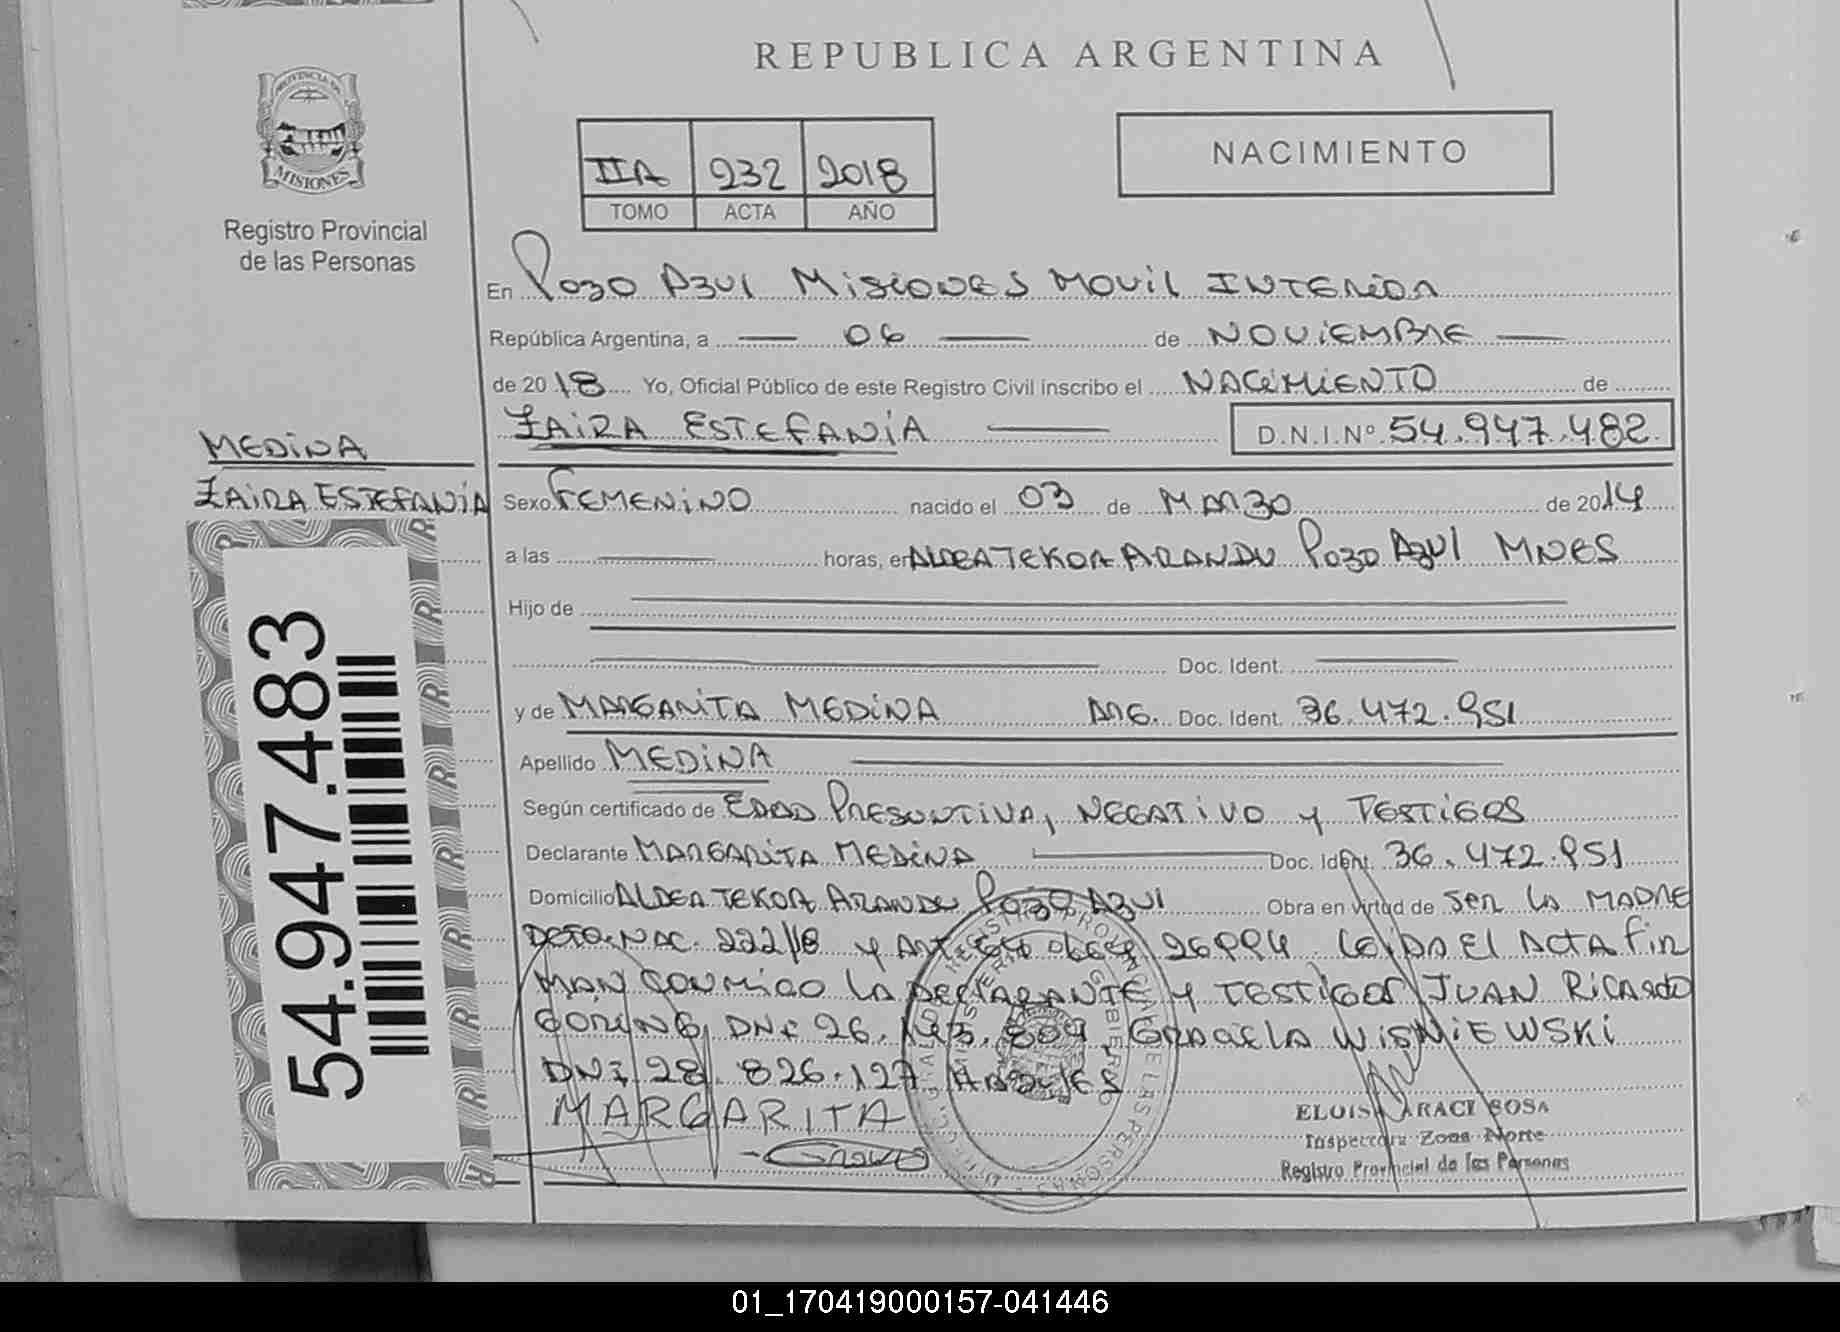 REPUBLICA ARGENTINA
PROVINCIA DE
MISIONES
Registro Provincial
de las Personas
IIA 232 2018
TOMO ACTA AÑO
NACIMIENTO
En Pozo Azul Misiones Movil INTERIOR
República Argentina, a 06 de NOVIEMBRE
de 2018 Yo, Oficial Público de este Registro Civil inscribo el NACIMIENTO de
ZAIRA ESTEFANIA D.N.I.Nº 54.947.482
MEDINA
ZAIRA ESTEFANIA
Sexo FEMENINO nacido el 03 de MARZO de 2014
a las horas, en ALDEA TEKOA ARANDU Pozo Azul MNES
Hijo de
Doc. Ident.
y de MARGARITA MEDINA ARG. Doc. Ident. 36.472.951
Apellido MEDINA
Según certificado de EDAD PRESUNTIVA, NEGATIVO y TESTIGOS
Declarante MARGARITA MEDINA Doc. Ident. 36.472.951
Domicilio ALDEA TEKOA ARANDU Pozo Azul Obra en virtud de ser la MADRE
NAC. 222/18 y 26994 Leida El ACTA fir
MAN CONMIGO LA DECLARANTE y TESTIGOS JUAN RICARDO
DNI 26. 809, GRACIELA WISNIEWSKI
DNI 28.826.127
MARGARITA
54.947.483
ELOISA ARACI SOSA
Inspectora Zona Norte
Registro Provincial de las Personas
01_170419000157-041446